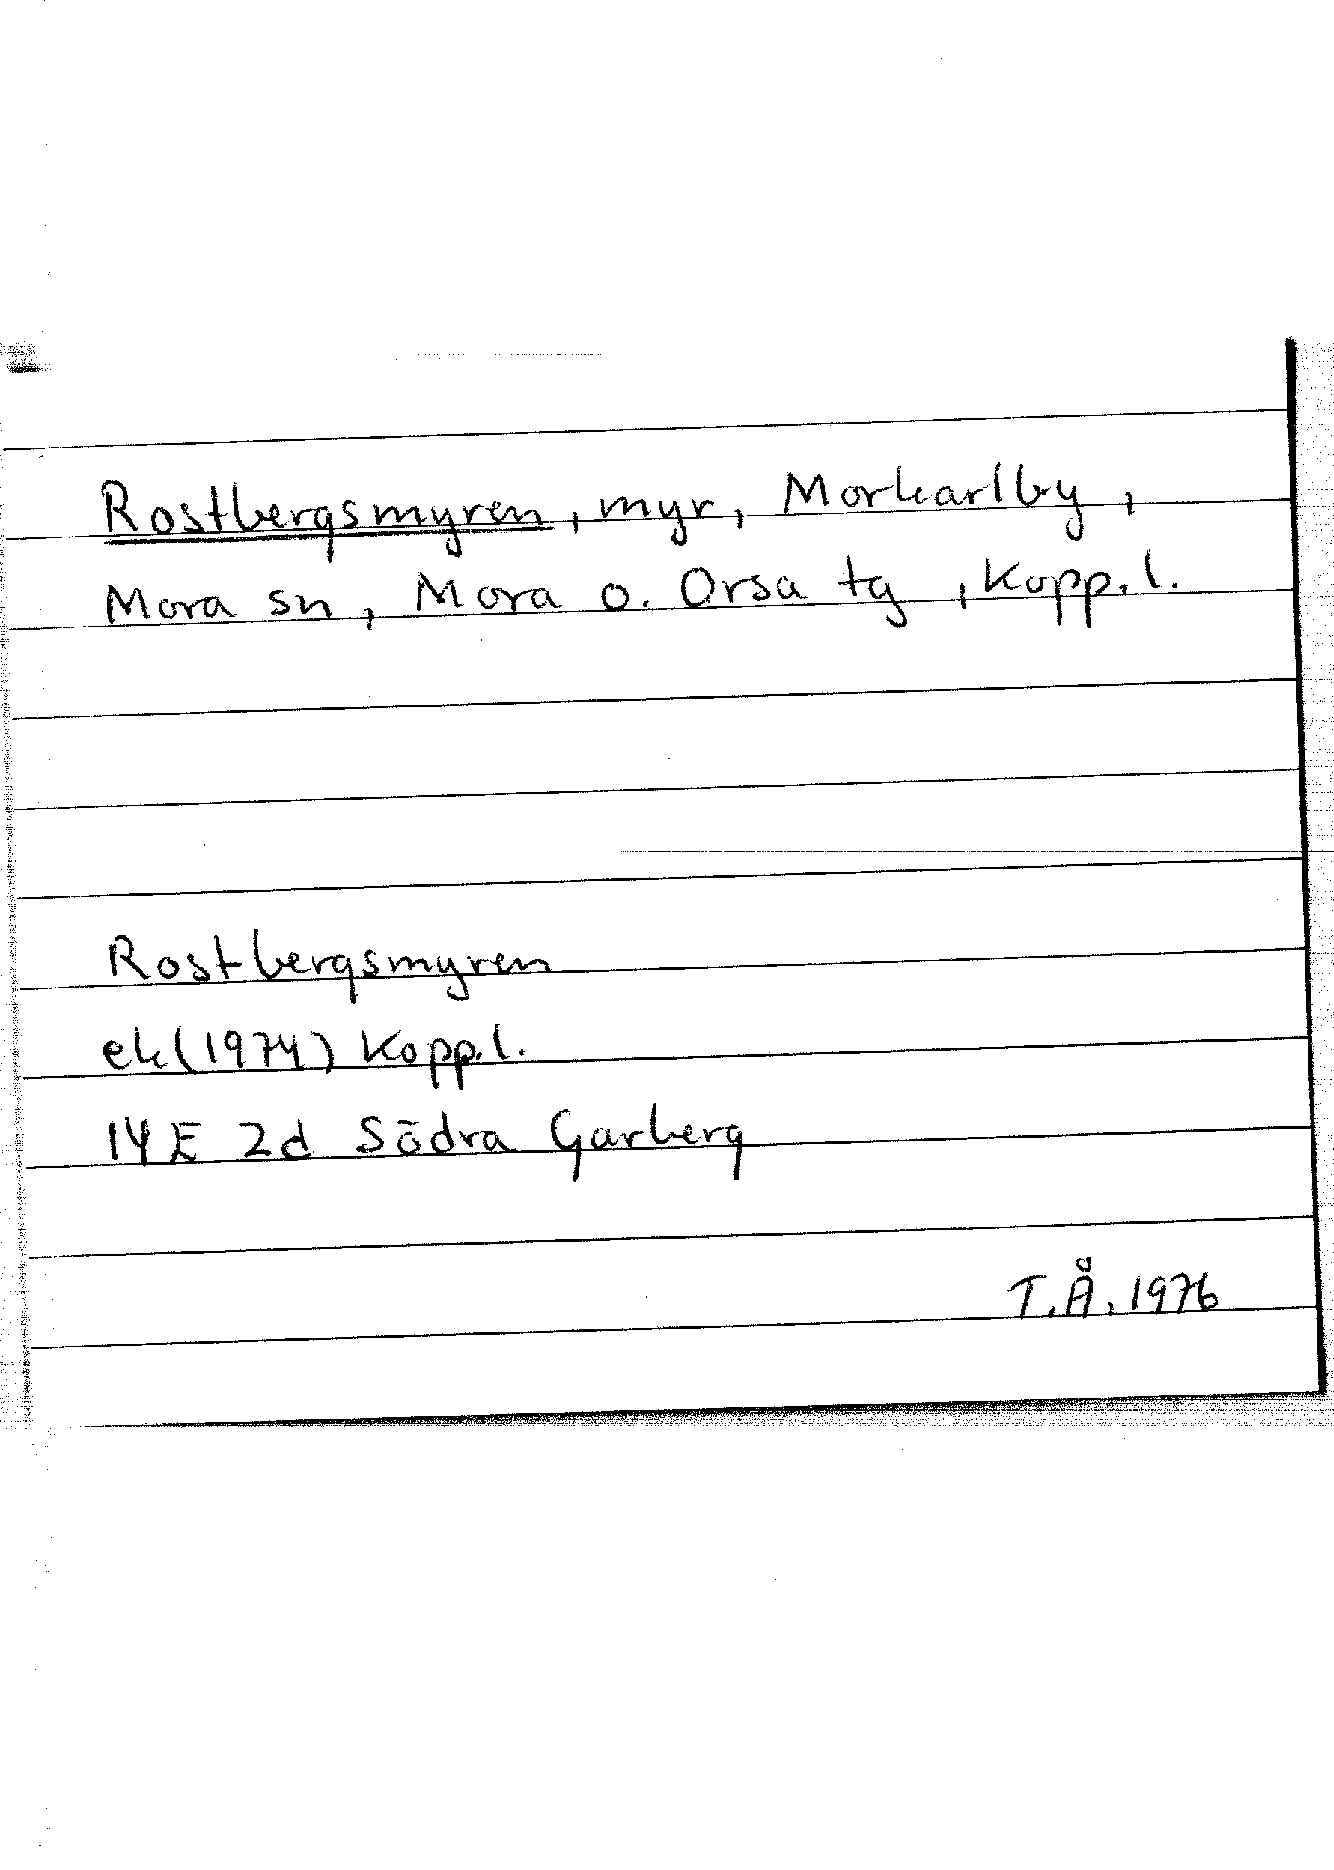 Rostbergsmyren, myr, Morkarlby,
Mora sn, Mora o. Orsa tg, Kopp.l.
Rostbergsmyren
ek (1974) Kopp.l.
14 E 2d Södra Garberg
T.Å. 1976